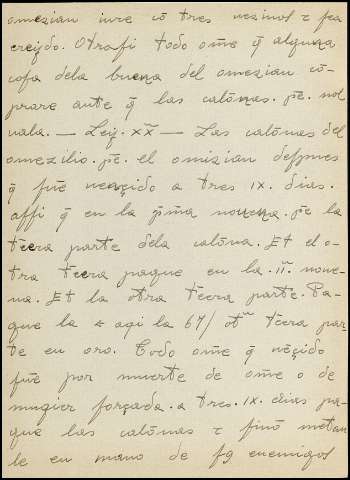 omezian iure cõ tres vezinos τ sea
creydo. Otrasi todo ome q̃ alguna
cosa dela buena del omezian cõ-
prare ante q̃ las calõnas. pe. nol
uala. — Ley. xx̃ — Las calõnas del
omezilio. pe. el omizian despues
q̃ fue vençido a tres ix. dias.
assi q̃ en la p̃ma nouena. pe la
t̃cera parte dela calõna. Et el o-
tra t̃cera pague en la. ii. noue-
na. Et la otra t̃cera parte. Pa-
gue la * aqi la 67/ ot t̃cera par-
te en oro. Todo ome q̃ vẽçido
fue por muerte de ome o de
mugier forçada. a tres. ix. dias pa-
gue las calõnas τ sinõ metan
le en mano de sq enemigos